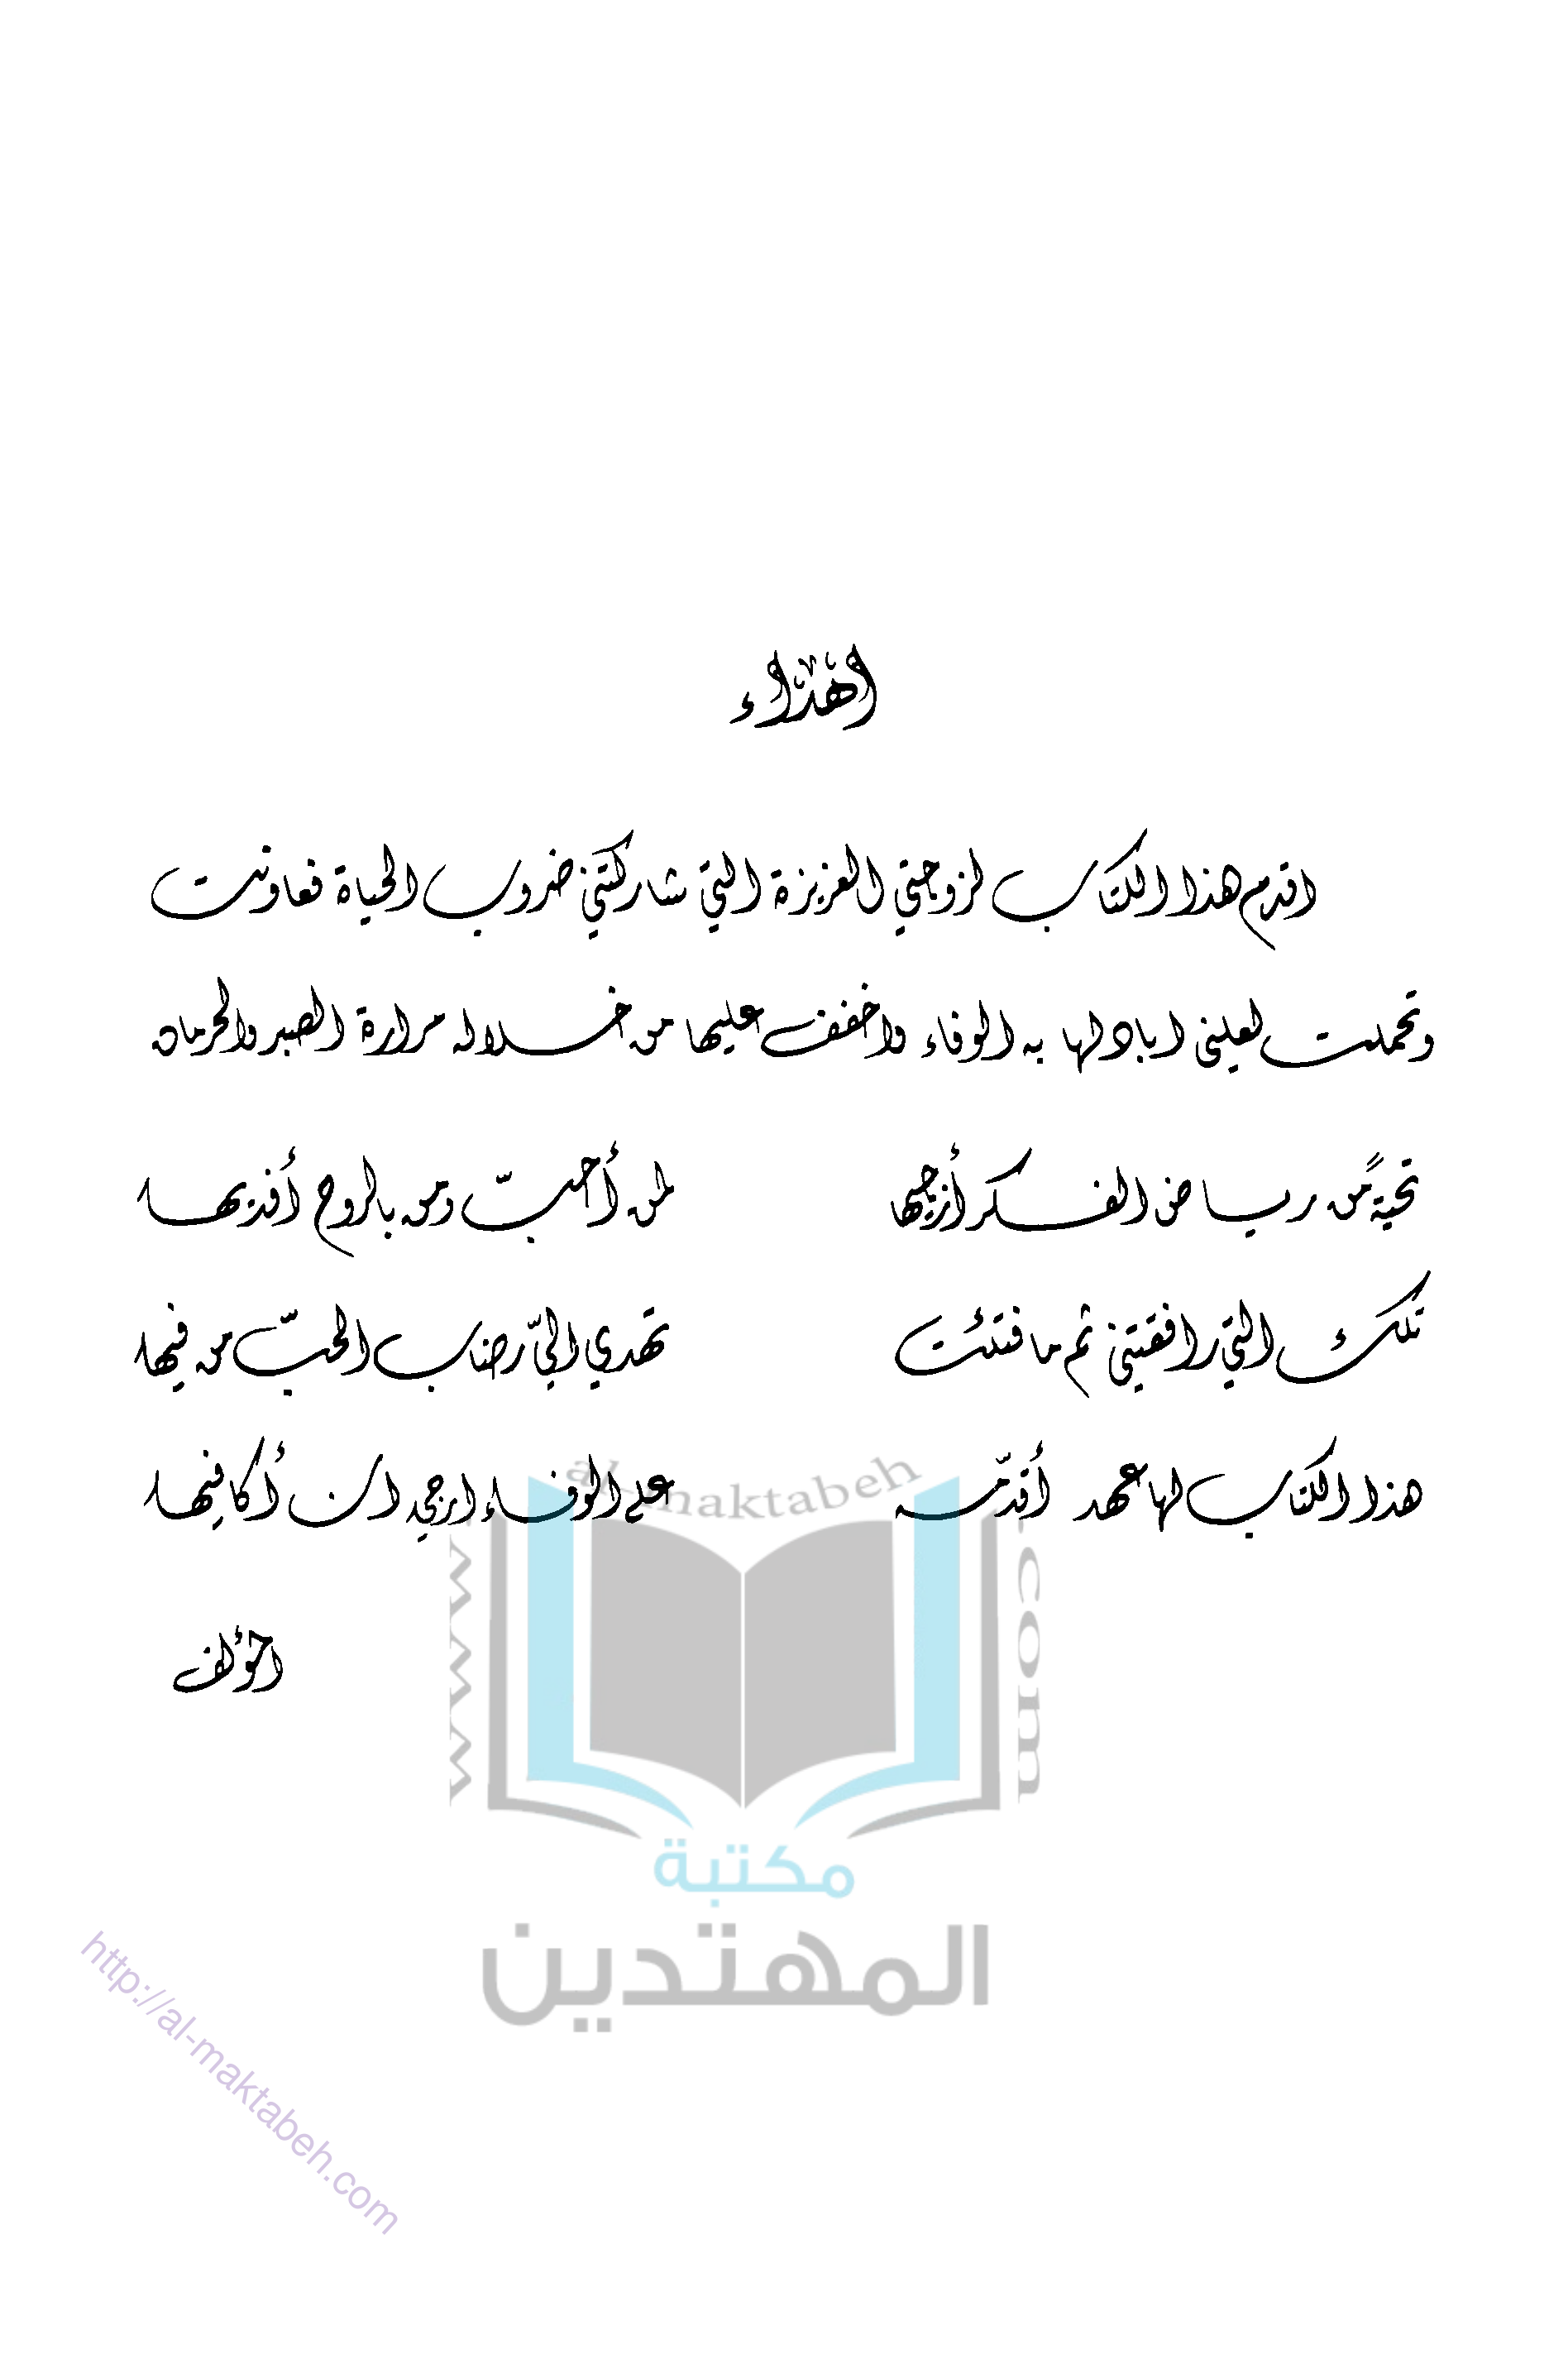 اهداء
اقدم هذا الكتاب لزوجتي العزيزة التي شاركتني ضروب الحياة فعاونت
وتحملت لعلني ابادلها به الوفاء واخفف عليها من خلاله مرارة الصبر والحرمان
تحيةً من رياض الفكر أزجيها لمن أحبّ ومن بالروح أفديها
تلك التي رافقتني ثم ما فتئت تهدي اليّ رضاب الحبّ من فيها
هذا الكتاب لها عهد أقدّمه على الوفاء ارجي ان أكافيها
المؤلف
www.al-maktabeh.com
مكتبة
المهتدين
http://al-maktabeh.com